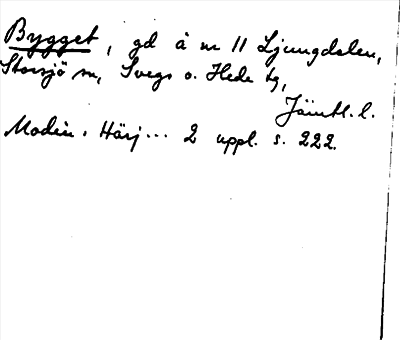 Bygget, gd å nr 11 Ljungdalen,
Storsjö sn, Svegs o. Hede tg,
Jämtl. l.
Modin. Härj... 2 uppl. s. 222.